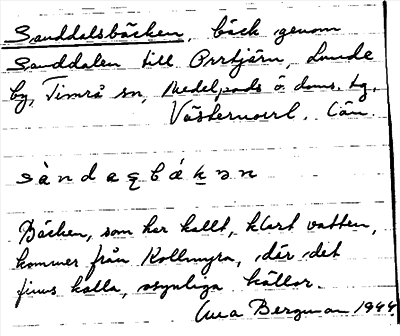 Sanddalsbäcken, bäck genom
Sanddalen till Orrtjärn, Lunde
by, Timrå sn, Medelpads ö. doms. tg.
Västernorrl. län.
sàndaqbǽkən
Bäcken, som har kallt, klart vatten,
kommer från Kollmyra, där det
finns kalla, osynliga källor.
Bergman 1944